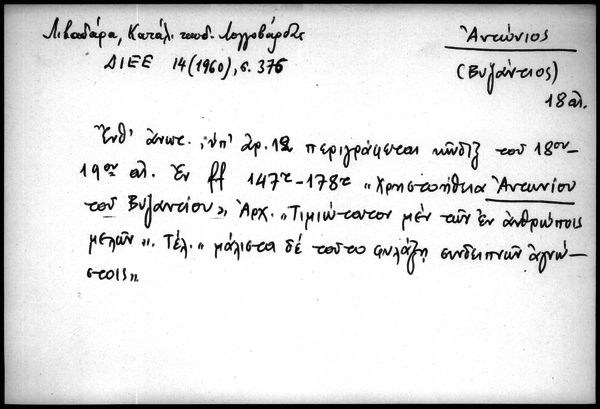 Λιβαδάρα, Κατάλ. κωδ. Λογγοβάρδας
Ἀντώνιος
ΔΙΕΕ 14 (1960), σ. 376
(Βυζάντιος)
18 αἰ.
Ἔνθ' ἀνωτ. ὑπ' ἀρ. 12 περιγράφεται κῶδιξ τοῦ 18ου–
19ου αἰ. Ἐν ff 147r–178r "Χρηστοήθεια Ἀντωνίου
τοῦ Βυζαντίου". Ἀρχ. "Τιμιώτατον μὲν τῶν ἐν ἀνθρώποις
μελῶν". Τέλ. "μάλιστα δὲ τοῦτο φυλάξῃ συνδειπνῶν ἀγνώ–
στοις".